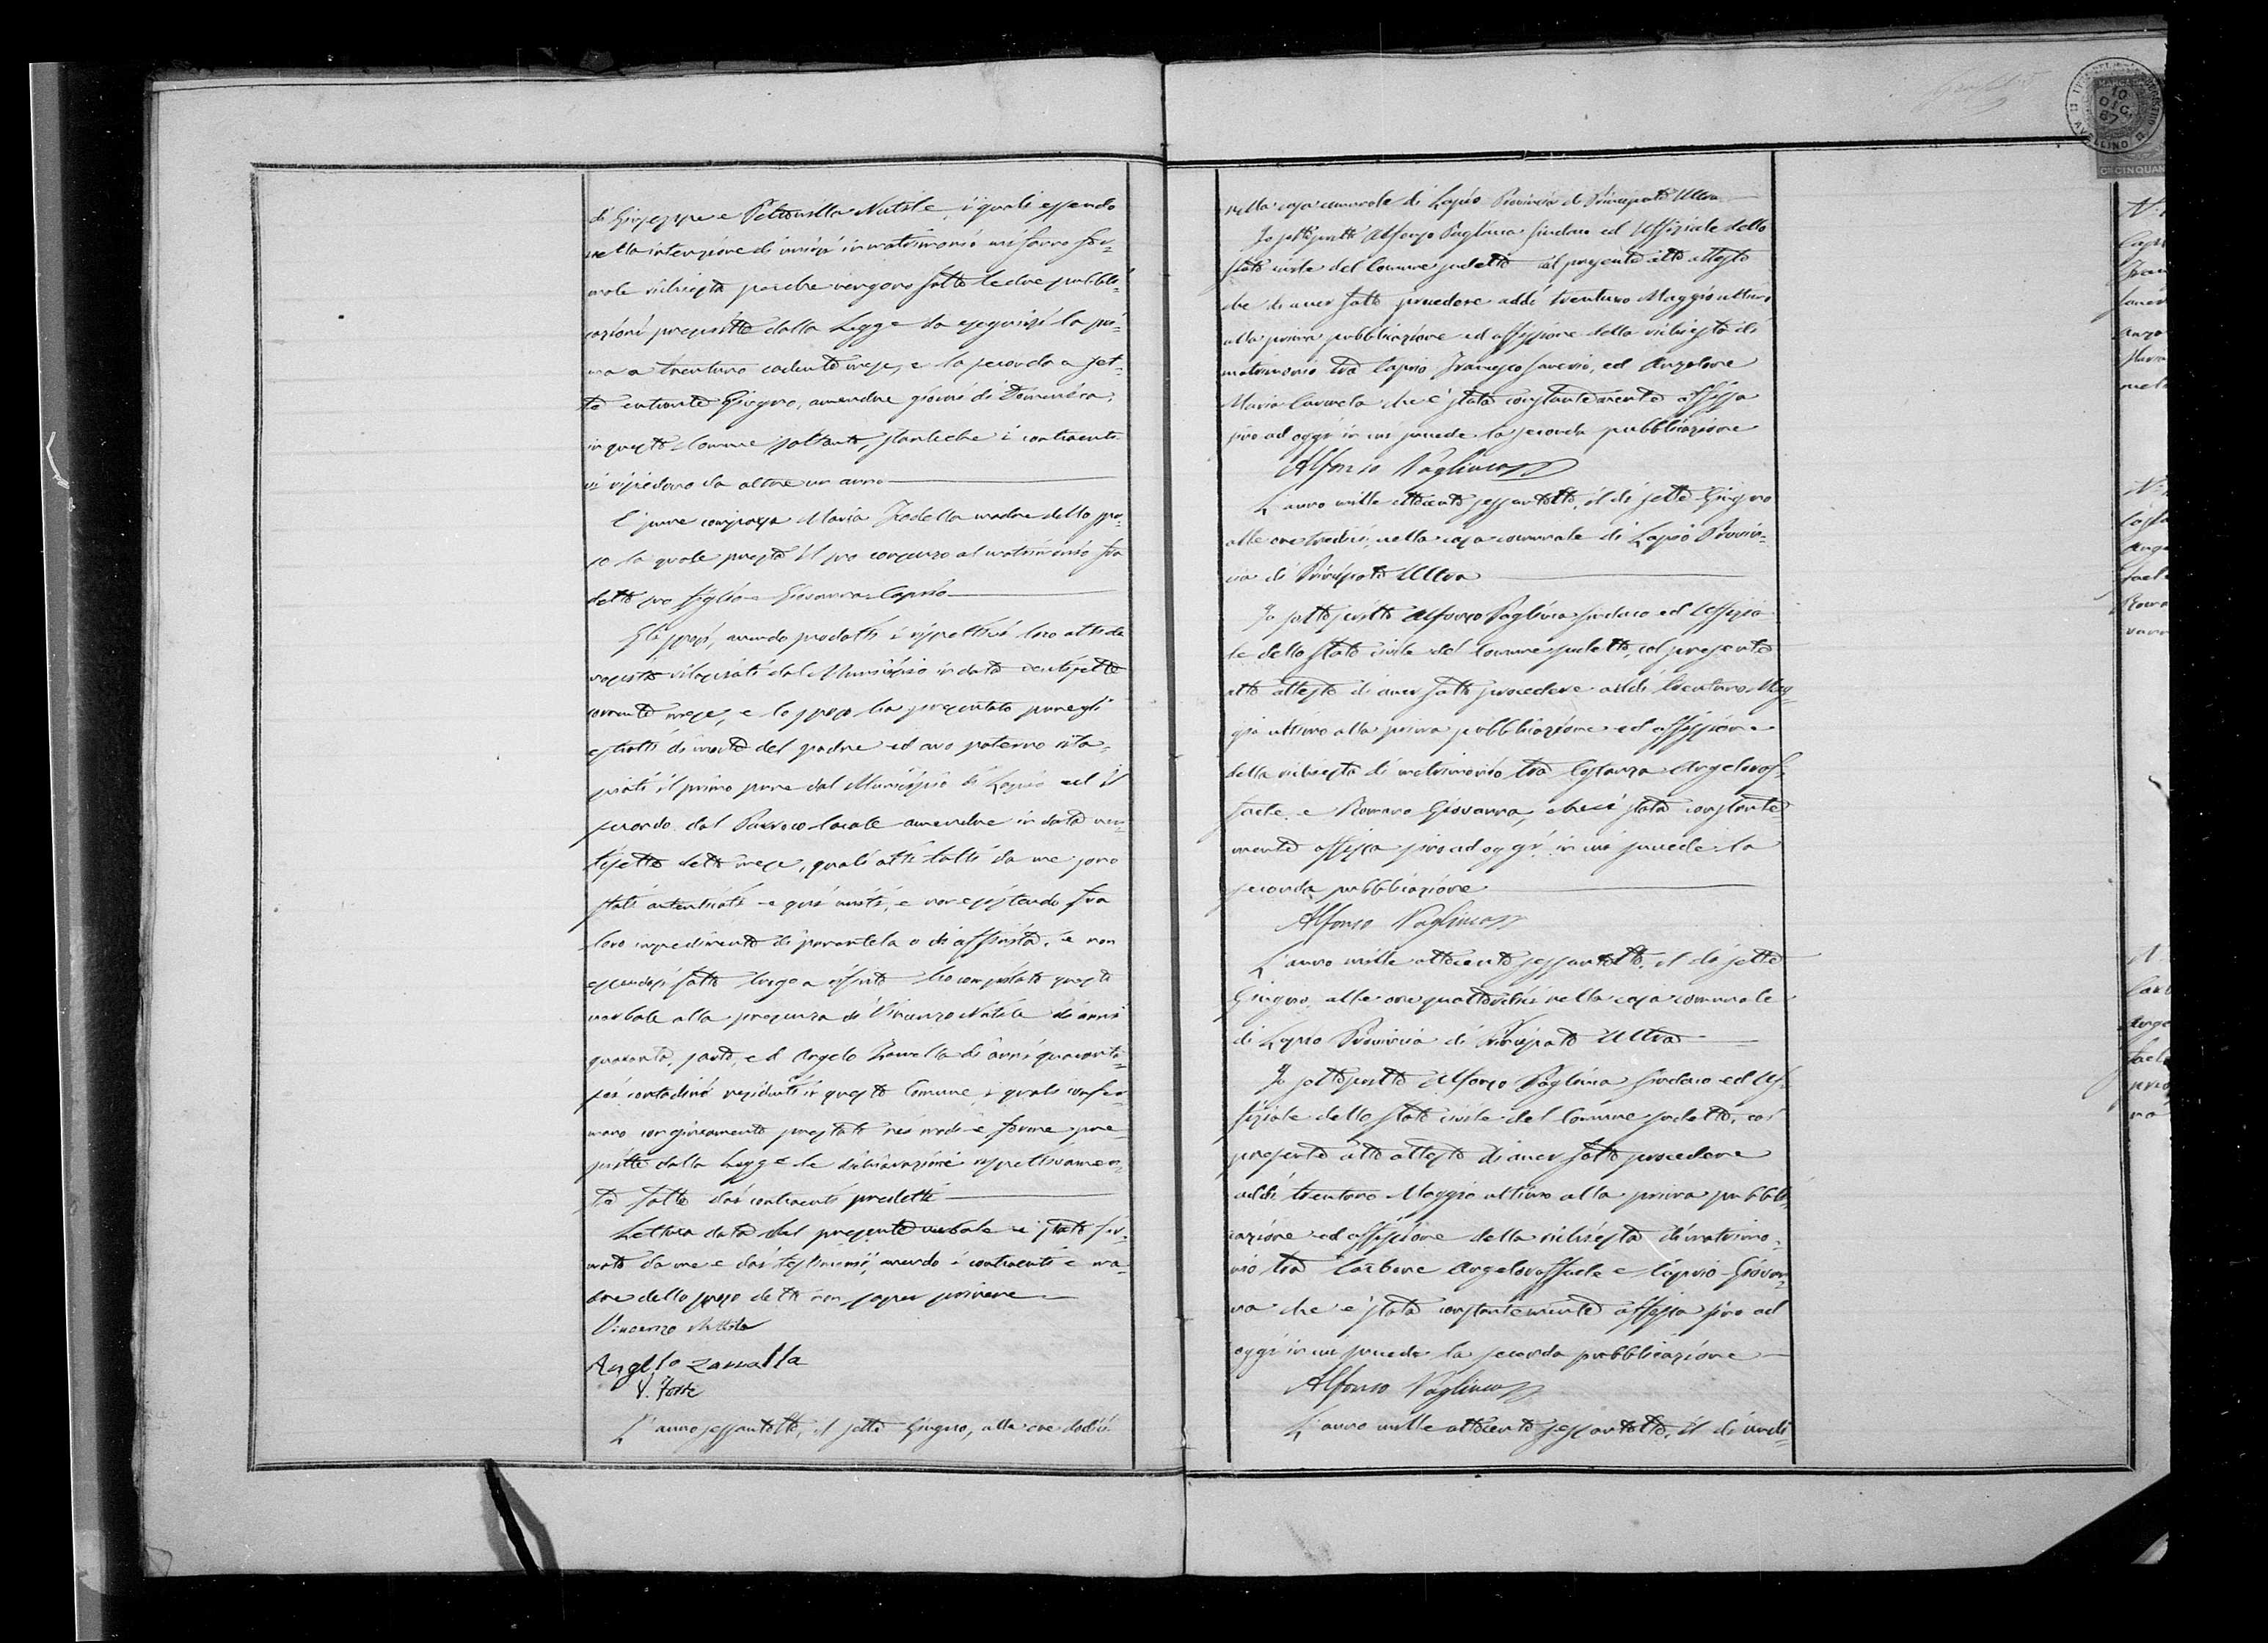 di Giuseppe e Petronilla Natale, i quali essendo
nella intenzione di unirsi in matrimonio mi fanno for-
male richiesta perché vengano fatte le due pubbli-
cazioni prescritte dalla Legge da eseguirsi la pri-
ma a trentuno cadente mese, e la seconda a set-
te entrante Giugno, amendue giorni di Domenica,
in questo Comune soltanto, stanteche i contraenti
vi risiedono da oltre un anno
È pure comparsa Maria madre dello spo-
so la quale presta il suo consenso al matrimonio fra
detto suo figlio e Giovanna Caprio
Gli sposi, avendo prodotti i rispettivi loro atti di
nascita rilasciati dal Municipio in data ventisette
corrente mese, e lo sposo ha presentato pure gli
estratti di morte del padre ed avo paterno rila-
sciati il primo pure dal Municipio di Lapio ed il
secondo dal Parroco locale amendue in data ven-
tisette detto mese, quali atti tutti da me sono
stati autenticati e quì uniti, e non esistendo fra
loro impedimento di parentela o di affinità, e non
essendosi fatto luogo a rifiuto ho compilato questo
verbale alla presenza di Vincenzo Natale di anni
quaranta, sarto, ed Angelo Zarrella di anni quaranta-
sei contadino residenti in questo Comune, i quali confer-
mano con giuramento prestato nei modi e forme pre-
scritte dalla Legge le dichiarazioni rispettivamen-
te fatte dai contraenti predetti
Lettura data del presente verbale è stato fir-
mato da me e dai testimonii, avendo i contraenti e ma-
dre dello sposo detto non saper scrivere
Vincenzo Natale
Angelo Zarrella
V. Forte
L'anno sessantotto, il sette Giugno, alle ore dodici
nella casa comunale di Lapio Provincia di Principato Ultra
Io sottoscritto Alfonso Pagliuca Sindaco ed Uffiziale dello
Stato civile del Comune sudetto col presente atto attesto
che di aver fatto procedere addì trentuno Maggio ultimo
alla prima pubblicazione ed affissione della richiesta di
matrimonio tra Caprio Francesco Saverio, ed Anzalone
Maria Carmela che è stata constantemente affissa
sino ad oggi in cui succede la seconda pubblicazione
Alfonso Pagliuca
L'anno mille ottocento sessantotto, il dì sette Giugno
alle ore tredici, nella casa comunale di Lapio Provin-
cia di Principato Ultra
Io sottoscritto Alfonso Pagliuca Sindaco ed Uffizia-
le dello Stato civile del Comune sudetto, col presente
atto attesto di aver fatto procedere addì trentuno Mag-
gio ultimo alla prima pubblicazione ed affissione
della richiesta di matrimonio tra Costanza Angeloraf-
faele e Romano Giovanna, che è stata constante-
mente affissa sino ad oggi in cui succede la
seconda pubblicazione
Alfonso Pagliuca
L'anno mille ottocento sessantotto, il dì sette
Giugno, alle ore quattordici nella casa comunale
di Lapio Provincia di Principato Ultra
Io sottoscritto Alfonso Pagliuca Sindaco ed Uf-
fiziale dello Stato civile del Comune sudetto, col
presente atto attesto di aver fatto procedere
addì trentuno Maggio ultimo alla prima pubbli-
cazione ed affissione della richiesta di matrimo-
nio tra Carbone Angeloraffaele e Caprio Giovan-
na che è stata constantemente affissa sino ad
oggi in cui succede la seconda pubblicazione
Alfonso Pagliuca
L'anno mille ottocento sessantotto, il dì undi-
10
DIC.
67
AVELLINO
CINQUAN